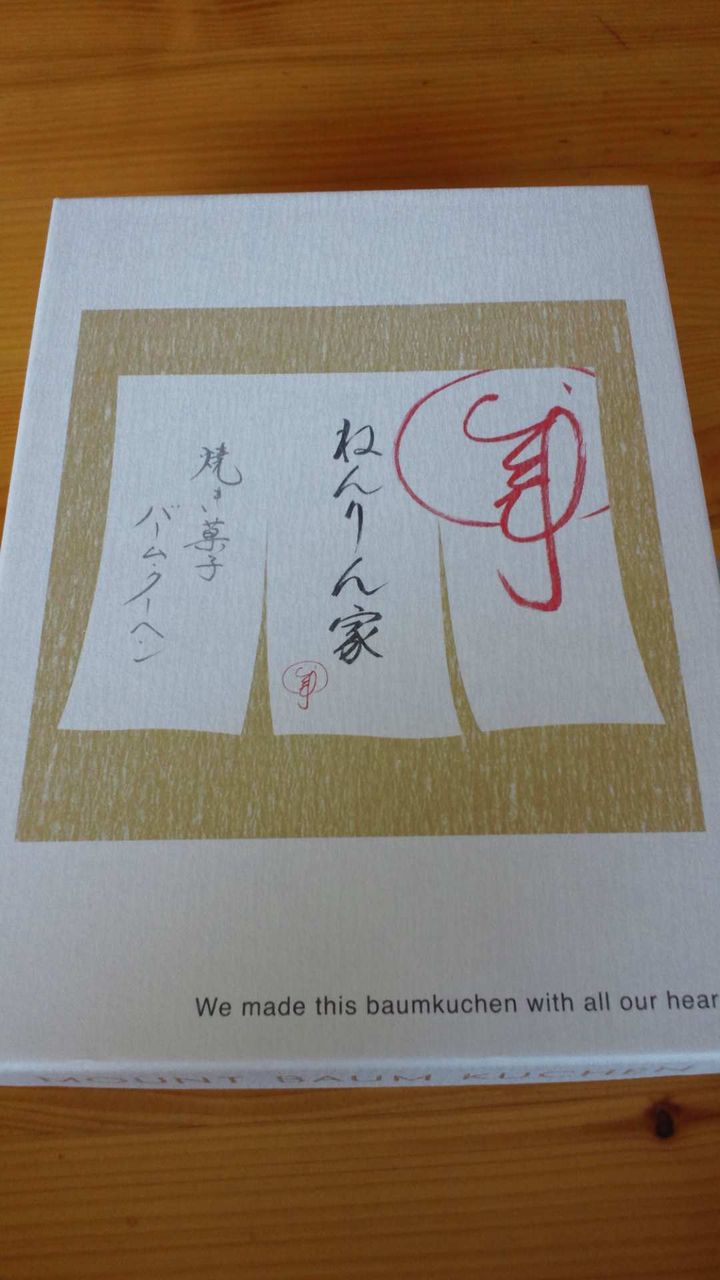 ねんりん家
焼き菓子
バーム・クーヘン
We made this baumkuchen with all our hear
MOUNT BAUM KUCHEN